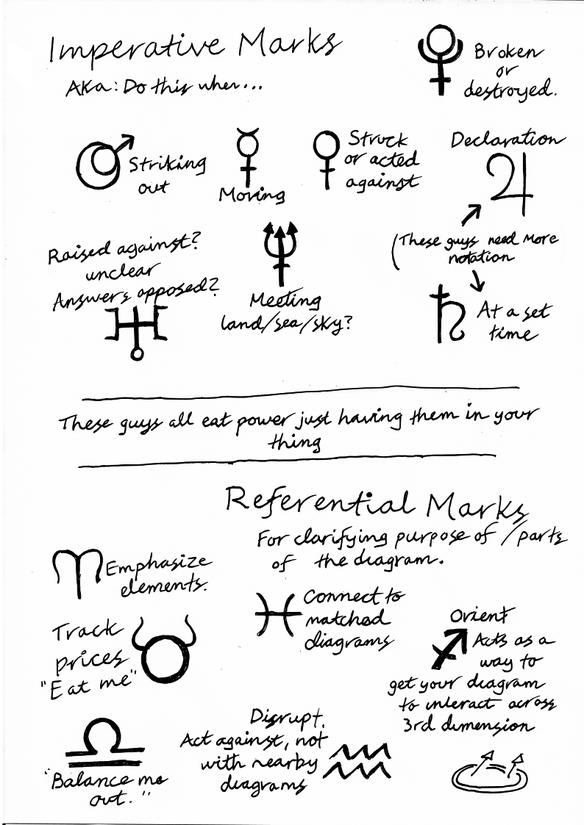 Imperative Marks
AKa: Do this when...
Broken
or
destroyed.
Striking
out
Moving
Struck
or acted
against
Declaration
(These guys need more
notation
At a set
time
Raised against?
unclear
Answers opposed?
Meeting
land/sea/sky?
These guys all eat power just having them in your
thing
Referential Marks
For clarifying purpose of /parts
of the diagram.
Emphasize
elements.
Connect to
matched
diagrams
Track
prices
"Eat me"
Orient
Acts as a
way to
get your diagram
to interact across
3rd dimension
Disrupt.
Act against, not
with nearby
diagrams
"Balance me
out."